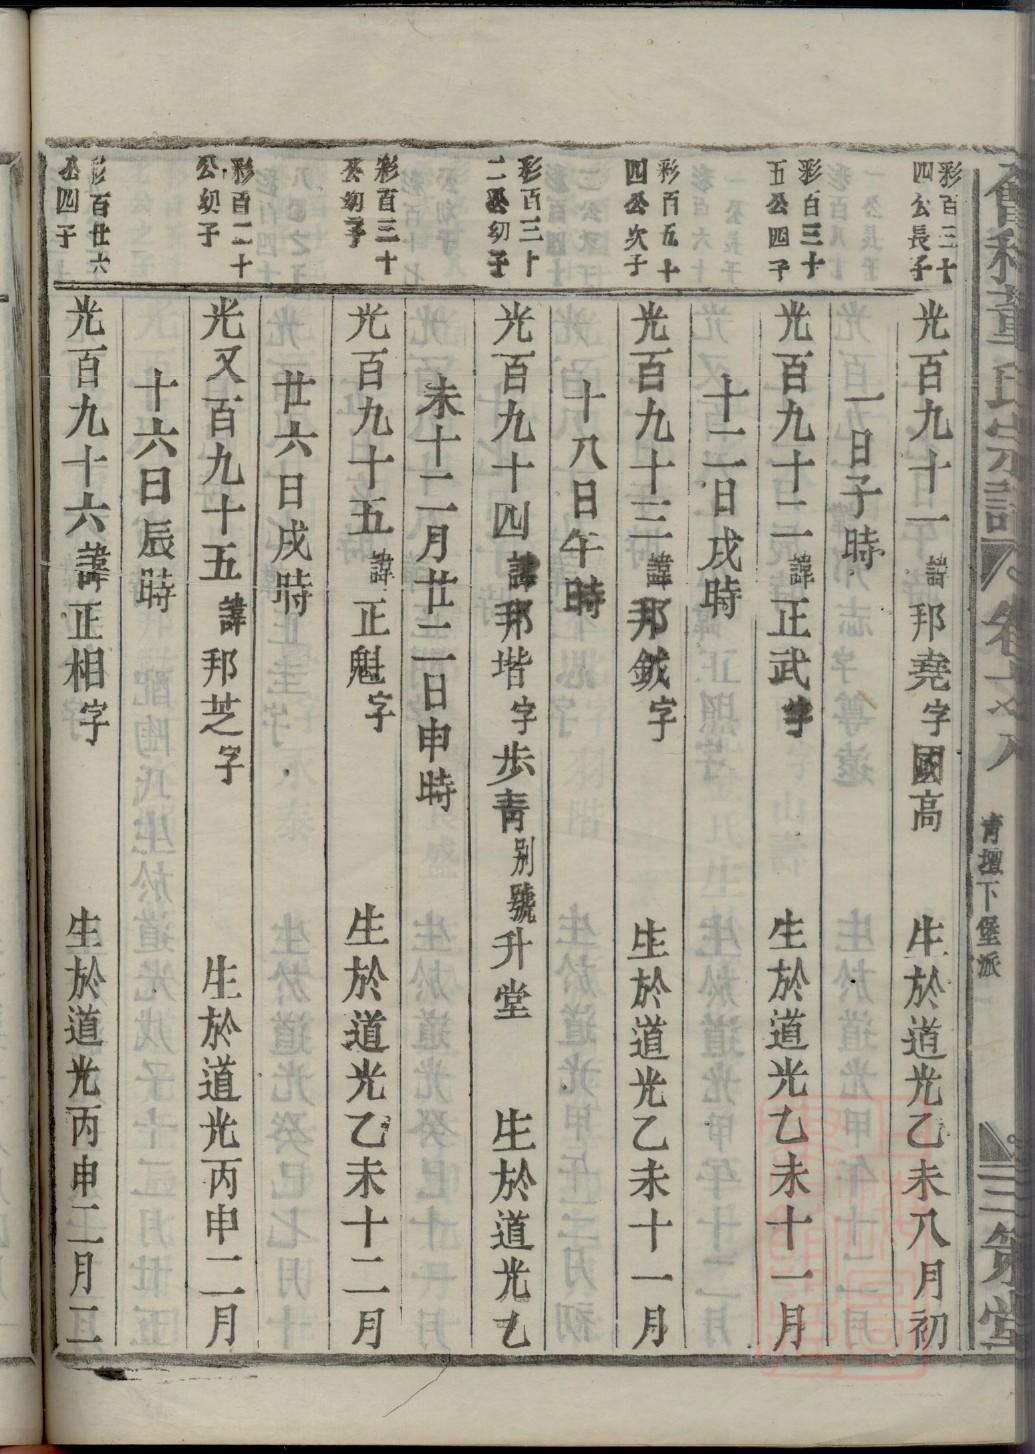 董氏宗譜
卷六十八
青壇下堡派
三策堂
彩百三十
四公長子
光百九十一諱邦堯字國高 生於道光乙未八月初
一日子時
彩百三十
五公四子
光百九十二諱正武字 生於道光乙未十一月
十二日戌時
彩百五十
四公次子
光百九十三諱邦鉞字 生於道光乙未十一月
十八日午時
彩百三十
二公幼子
光百九十四諱邦堦字步青別號升堂 生於道光乙
未十二月廿二日申時
彩百三十
公幼子
光百九十五諱正魁字 生於道光乙未十二月
廿六日戌時
彩百二十
公幼子
光又百九十五諱邦芝字 生於道光丙申二月
十六日辰時
彩百廿六
公四子
光百九十六諱正相字 生於道光丙申二月三